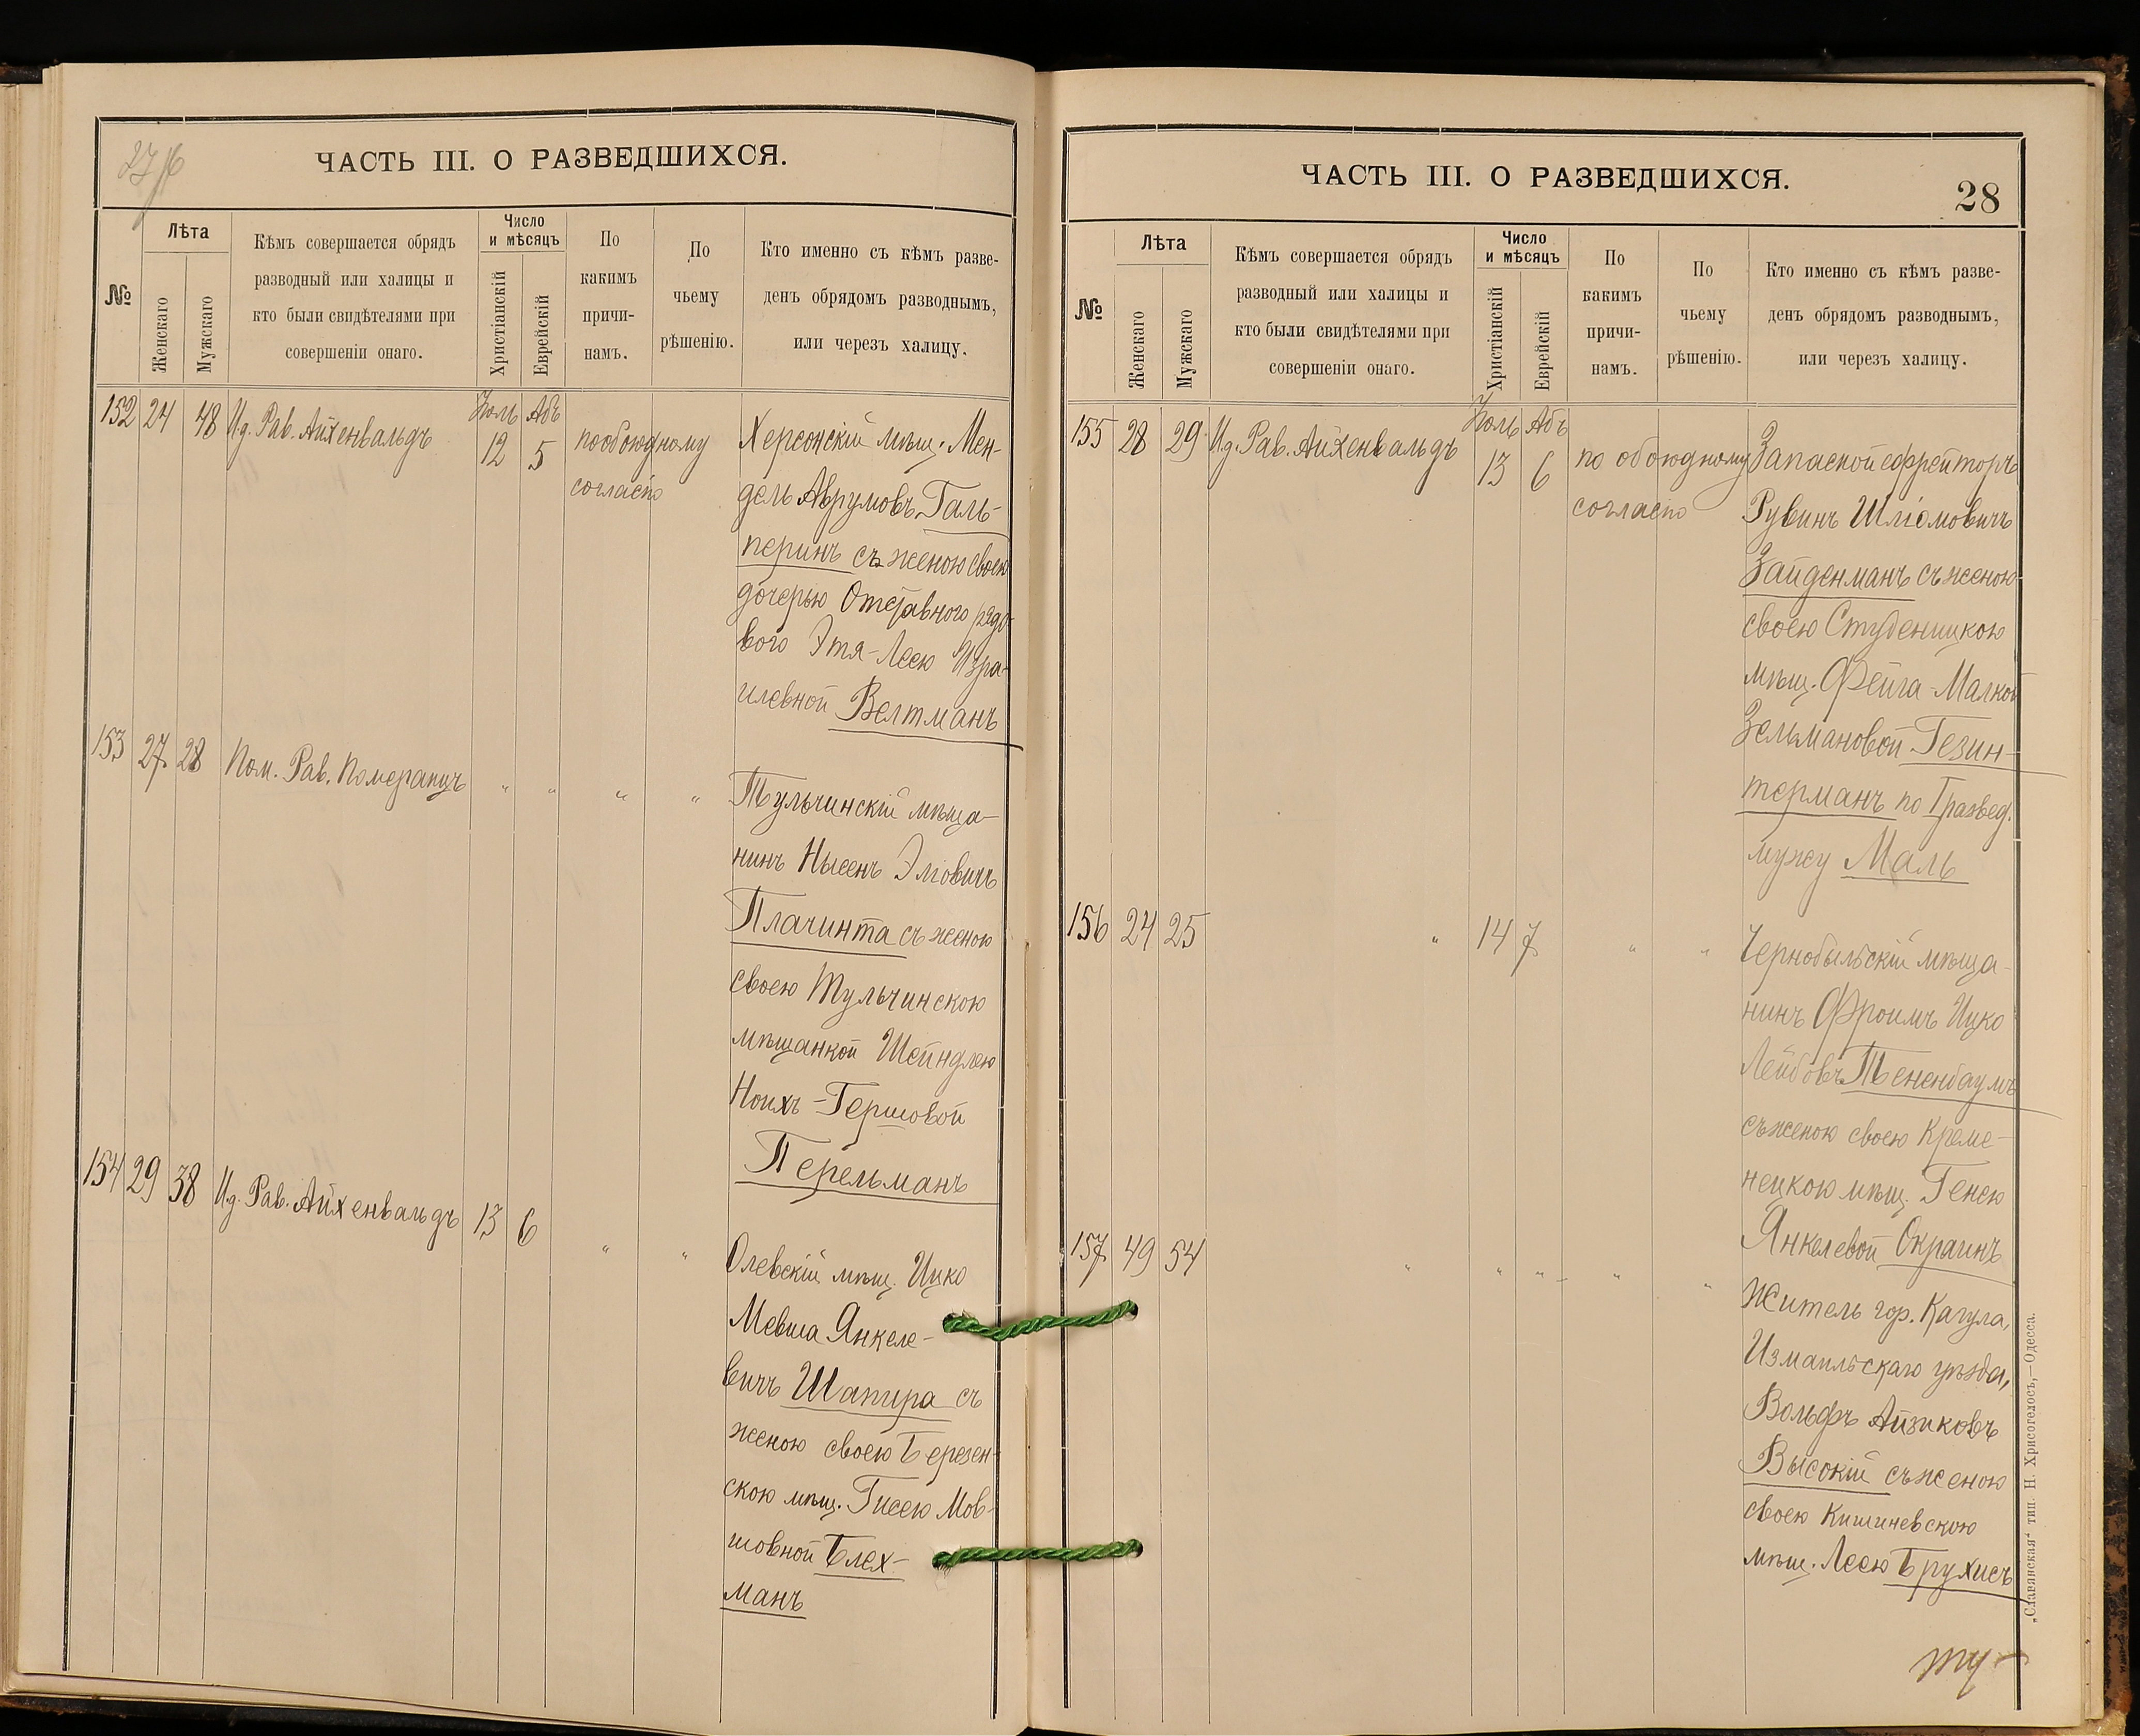 ЧАСТЬ III. О РАЗВЕДШИХСЯ.
№
Лѣта
Женскаго
Мужскаго
Кѣмъ совершается обрядъ
разводный или халицы и
кто были свидѣтелями при
совершеніи онаго.
Число
и мѣсяцъ
Христіанскій
Еврейскій
По
какимъ
причи-
намъ.
По
чьему
рѣшенію.
Кто именно съ кѣмъ разве-
денъ обрядомъ разводнымъ,
или черезъ халицу.
152 24 48 И.д. Рав. Айхенвальдъ Іюль 12 Абъ 5 по обоюдному
согласію
Херсонскій мѣщ. Мен-
дель Аврумовъ Галь-
перинъ съ женою своею
дочерью Отставного рядо-
вого Этя-Леею Изра-
илевной Велтманъ
153 27 28 Пом. Рав. Померанцъ " " " "
Тульчинскій мѣща-
нинъ Нысенъ Эліовичъ
Плачинта съ женою
своею Тульчинскою
мѣщанкой Шейндлею
Ноихъ-Гершовой
Перельманъ
154 29 38 И.д. Рав. Айхенвальдъ 13 6 " "
Олевскій мѣщ. Ицко
Мевша Янкеле-
вичъ Шапира съ
женою своею Березен-
скою мѣщ. Гисею Мов-
шовной Блех-
манъ
ЧАСТЬ III. О РАЗВЕДШИХСЯ.
28
№
Лѣта
Женскаго
Мужскаго
Кѣмъ совершается обрядъ
разводный или халицы и
кто были свидѣтелями при
совершеніи онаго.
Число
и мѣсяцъ
Христіанскій
Еврейскій
По
какимъ
причи-
намъ.
По
чьему
рѣшенію.
Кто именно съ кѣмъ разве-
денъ обрядомъ разводнымъ,
или черезъ халицу.
155 28 29 И.д. Рав. Айхенвальдъ Іюль 13 Абъ 6 по обоюдному
согласію
Запасной ефрейторъ
Рувинъ Шліомовичъ
Зайденманъ съ женою
своею Студеницкою
мѣщ. Фейга-Малкой
Зельмановой Гезин-
терманъ по I развед.
мужу Маль
156 24 25 " 14 7 " "
Чернобыльскій мѣща-
нинъ Фроимъ Ицко
Лейбовъ Тененбаумъ
съ женою своею Креме-
нецкою мѣщ. Генею
Янкелевой Окраинъ
157 49 54 " " " " "
Житель гор. Кагула,
Измаильскаго уѣзда,
Вольфъ Айзиковъ
Высокій съ женою
своею Кишиневскою
мѣщ. Леею Брухисъ
„Славянская" тип. Н. Хрисогелосъ,—Одесса.